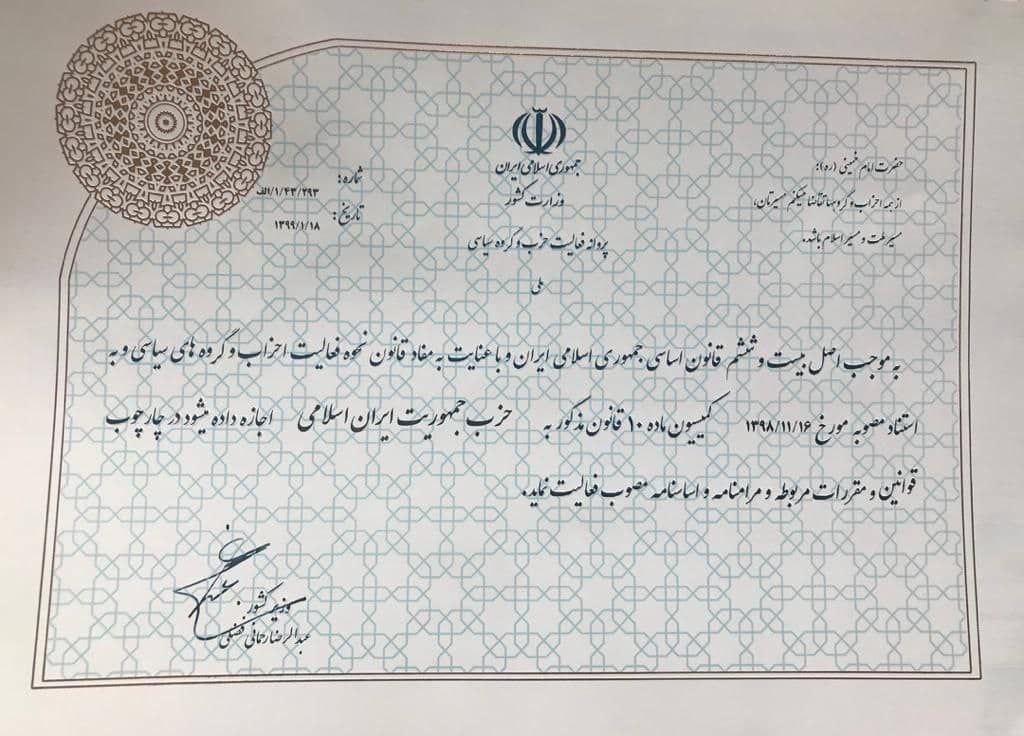 جمهوری اسلامی ایران
وزارت کشور
پروانه فعالیت حزب و گروه سیاسی
ملی
حضرت امام خمینی (ره):
از همه احزاب و گروهها تقاضا میکنم مسیرتان،
مسیر ملت و مسیر اسلام باشد.
شماره:
۱/۴۳/۲۹۳/الف
تاریخ:
۱۳۹۹/۱/۱۸
به موجب اصل بیست و ششم قانون اساسی جمهوری اسلامی ایران و با عنایت به مفاد قانون نحوه فعالیت احزاب و گروه های سیاسی و به
استناد مصوبه مورخ ۱۳۹۸/۱۱/۱۶ کمیسیون ماده ۱۰ قانون مذکور به حزب جمهوریت ایران اسلامی اجازه داده میشود در چارچوب
قوانین و مقررات مربوطه و مرامنامه و اساسنامه مصوب فعالیت نماید.
وزیر کشور
عبدالرضا رحمانی فضلی